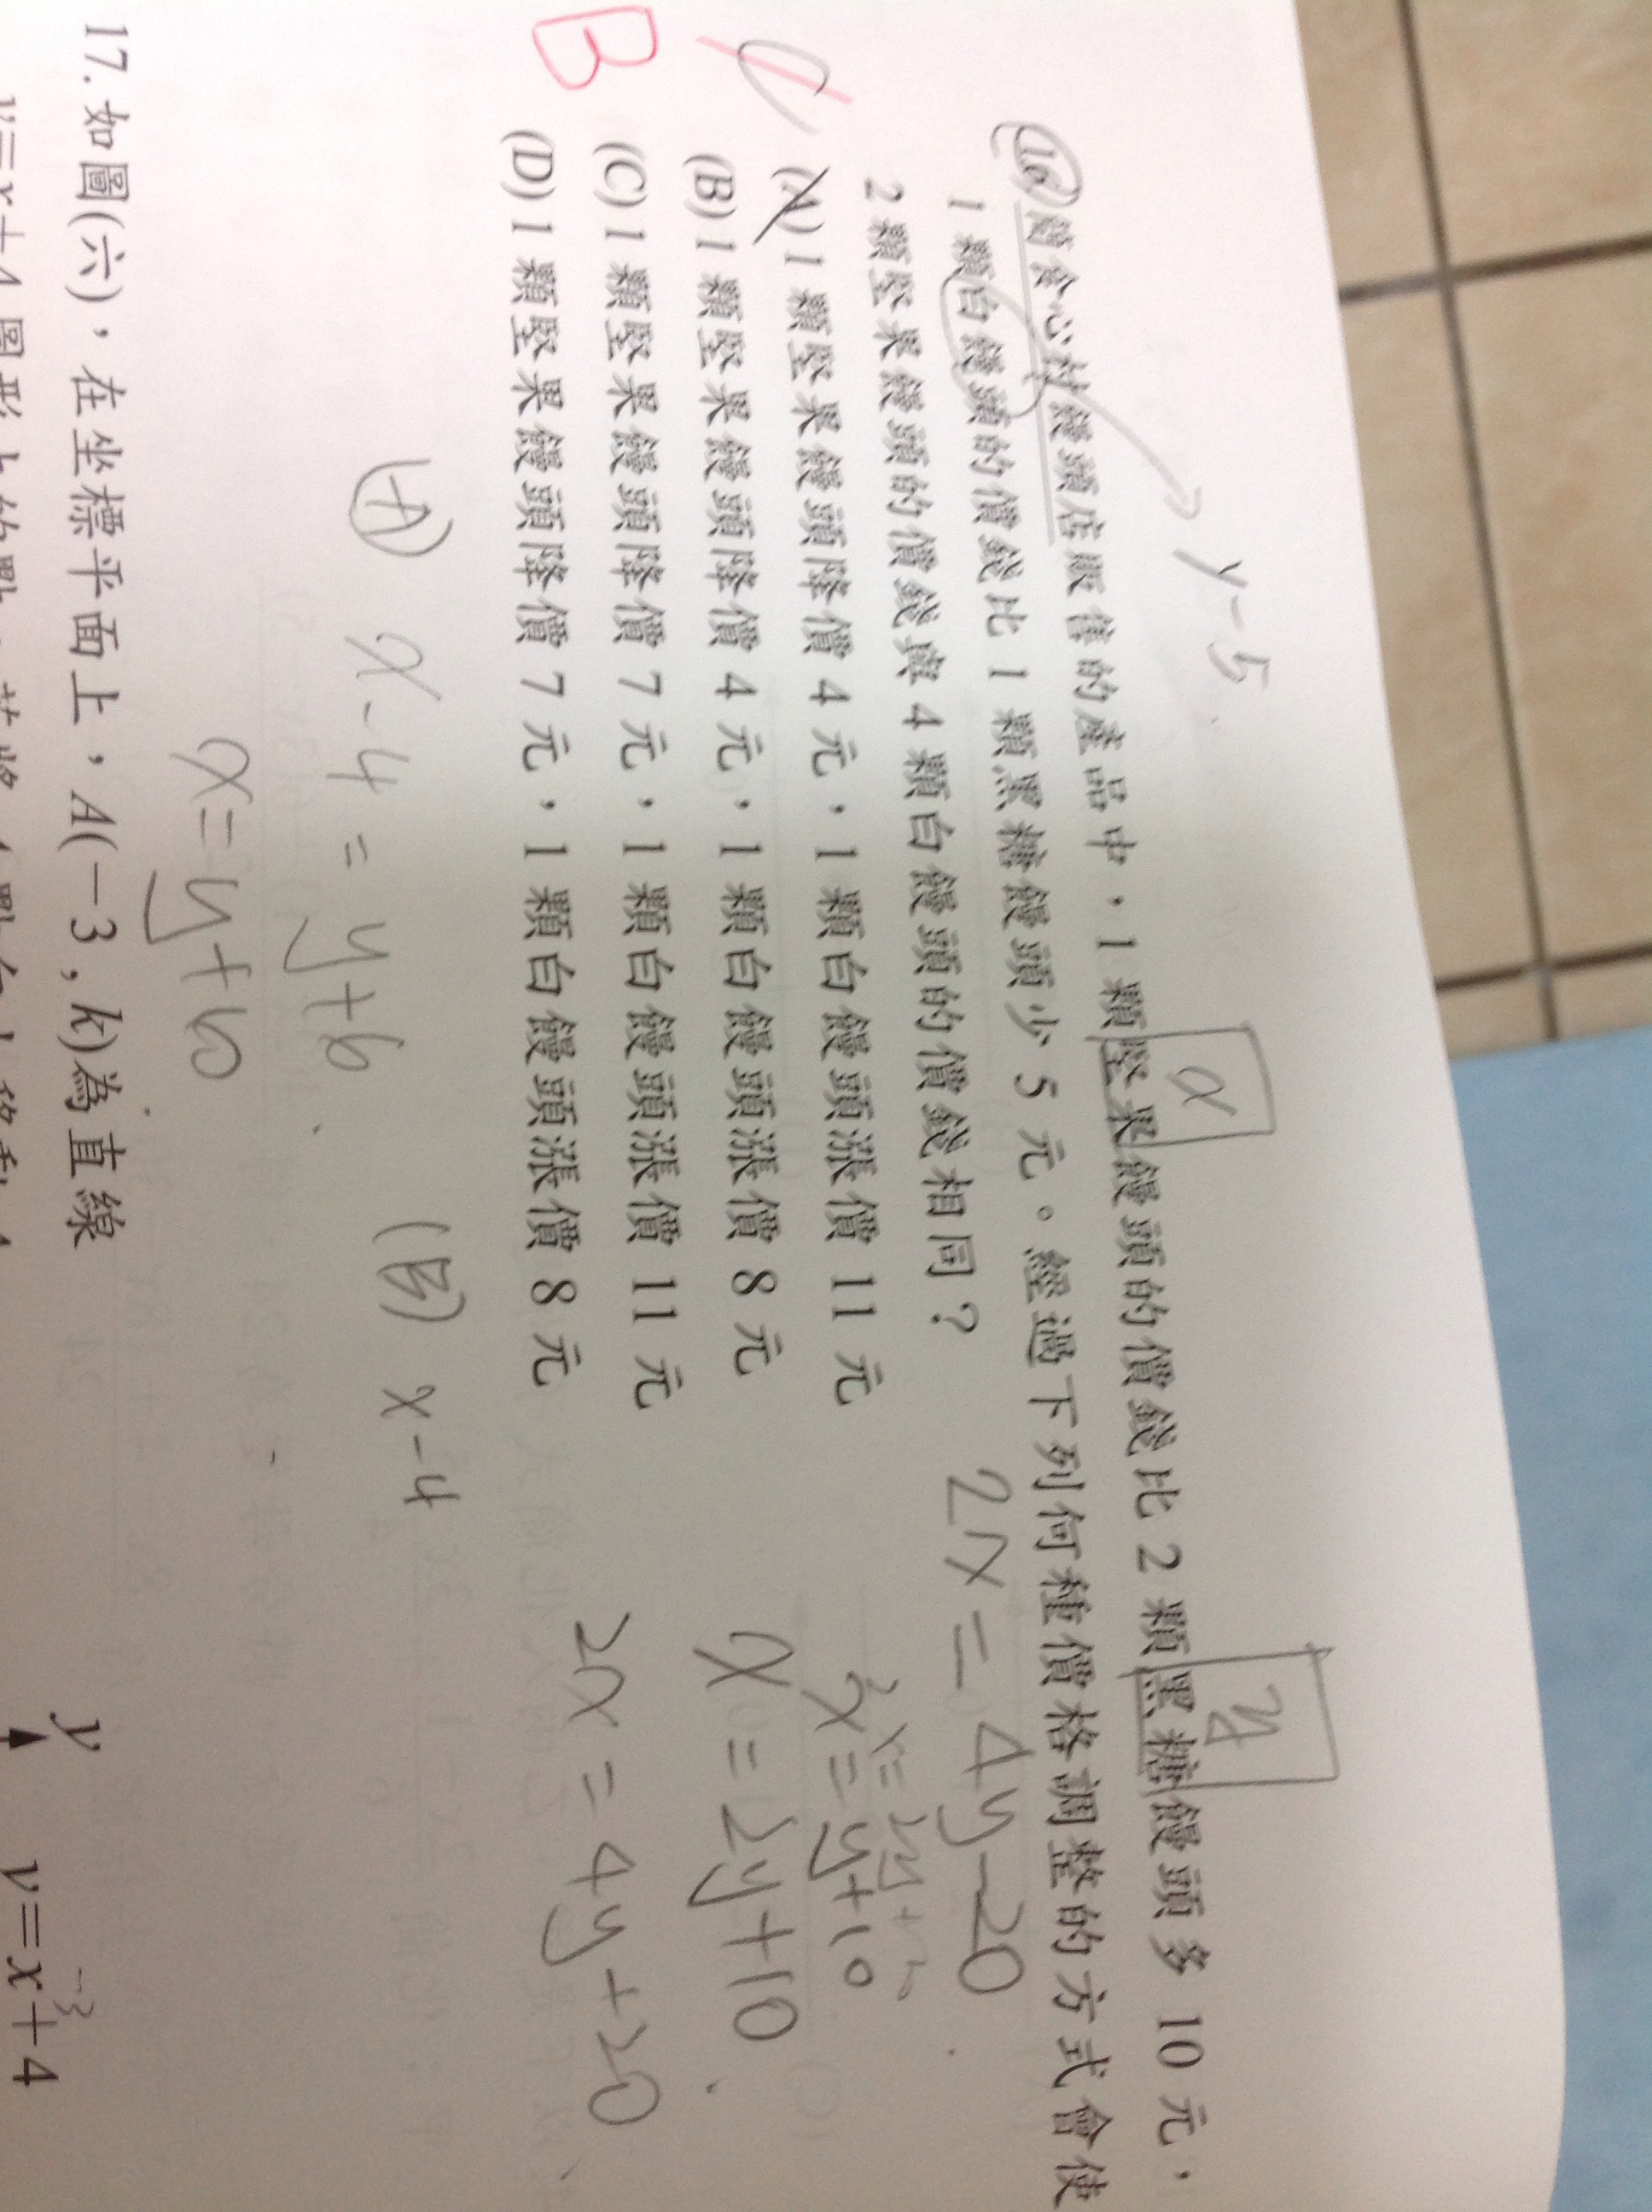 y-5
x
y
16. 簡含心村饅頭店販售的產品中，1 顆堅果饅頭的價錢比 2 顆黑糖饅頭多 10 元，
1 顆白饅頭的價錢比 1 顆黑糖饅頭少 5 元。經過下列何種價格調整的方式會使
2 顆堅果饅頭的價錢與 4 顆白饅頭的價錢相同？
2x = 4y-20
(A) 1 顆堅果饅頭降價 4 元，1 顆白饅頭漲價 11 元
x = y+10
(B) 1 顆堅果饅頭降價 4 元，1 顆白饅頭漲價 8 元
x = 2y+10
(C) 1 顆堅果饅頭降價 7 元，1 顆白饅頭漲價 11 元
B
(D) 1 顆堅果饅頭降價 7 元，1 顆白饅頭漲價 8 元
2x = 4y+20
(A) x-4 = y+6
(B) x-4
x=y+10
17. 如圖(六)，在坐標平面上，A(−3 , k)為直線
y
-3
y=x+4